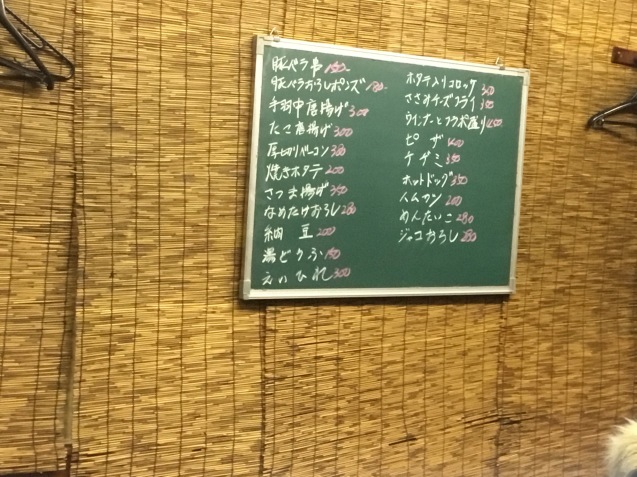 豚バラ串150
豚バラおろしポンズ180
手羽中唐揚げ300
たこ唐揚げ300
厚切りベーコン380
焼きホタテ200
さつま揚げ350
なめたけおろし280
納豆200
湯どうふ150
えいひれ300
ホタテ入りコロッケ300
ささみチーズフライ300
ウインナーとフラポ盛り400
ピザ400
チヂミ350
ホットドッグ350
ハムカツ200
めんたいこ280
ジャコおろし280